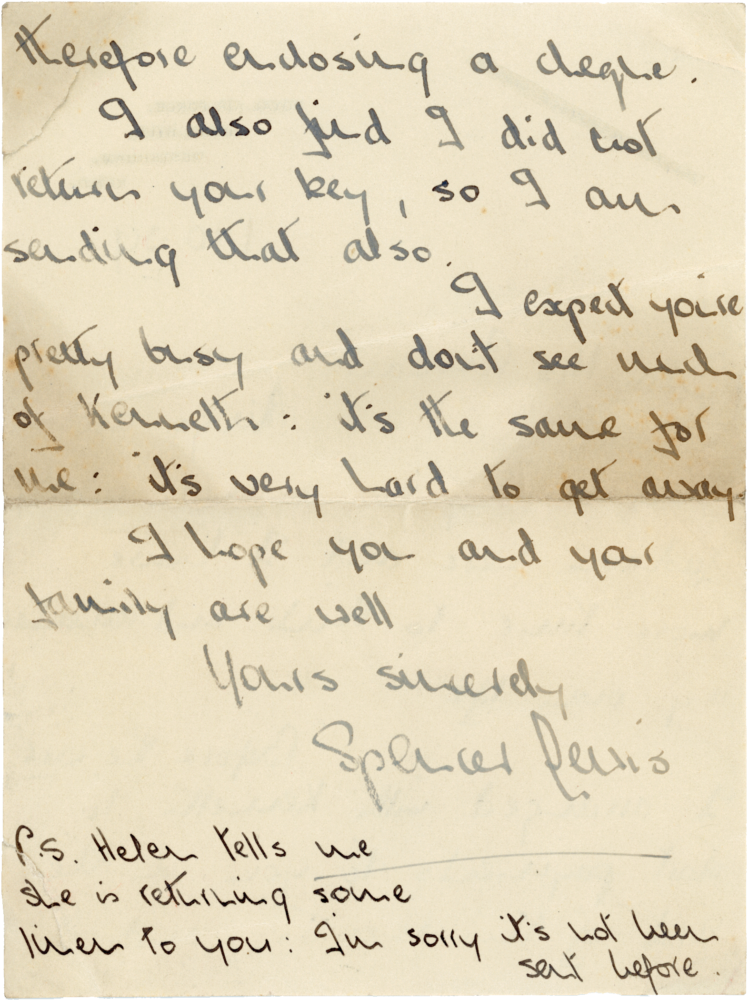 therefore enclosing a cheque.
I also find I did not
return your key, so I am
sending that also.
I expect you're
pretty busy and don't see much
of Kenneth: it's the same for
me: it's very hard to get away.
I hope you and your
family are well
Yours sincerely
Spencer Lewis
P.S. Helen tells me
she is returning some
linen to you: I'm sorry it's not been
sent before.